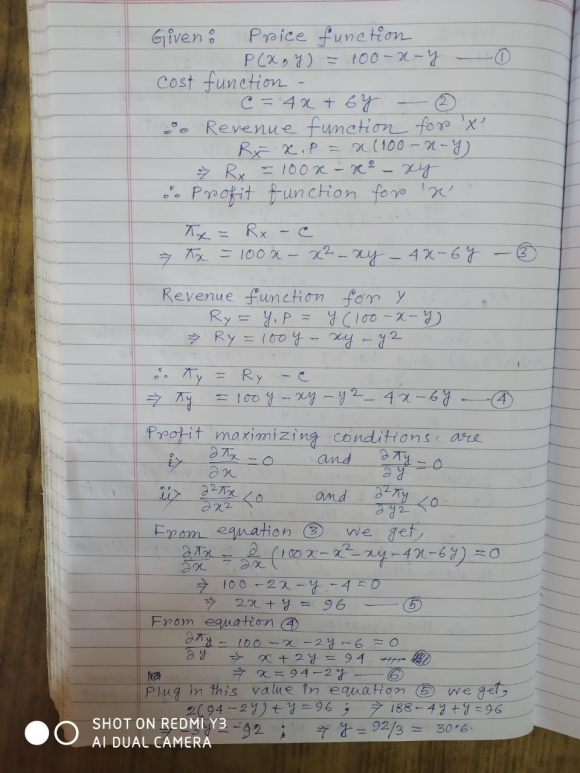 Given: Price function
P(x,y) = 100-x-y —— ①
Cost function -
C = 4x + 6y —— ②
∴ Revenue function for 'x'
Rx = x.P = x(100-x-y)
⇒ Rx = 100x - x² - xy
∴ Profit function for 'x'
πx = Rx - C
⇒ πx = 100x - x² - xy - 4x - 6y — ③
Revenue function for y
Ry = y.P = y(100-x-y)
⇒ Ry = 100y - xy - y²
∴ πy = Ry - C
⇒ πy = 100y - xy - y² - 4x - 6y —— ④
Profit maximizing conditions are
i> ∂πx/∂x = 0 and ∂πy/∂y = 0
ii> ∂²πx/∂x² < 0 and ∂²πy/∂y² < 0
From equation ③ we get,
∂πx/∂x = ∂/∂x (100x - x² - xy - 4x - 6y) = 0
⇒ 100 - 2x - y - 4 = 0
⇒ 2x + y = 96 —— ⑤
From equation ④
∂πy/∂y = 100 - x - 2y - 6 = 0
⇒ x + 2y = 94
⇒ x = 94 - 2y —— ⑥
Plug in this value in equation ⑤ we get,
2(94-2y) + y = 96 ; ⇒ 188 - 4y + y = 96
⇒ -3y = -92 ; ⇒ y = 92/3 = 30.6
SHOT ON REDMI Y3
AI DUAL CAMERA